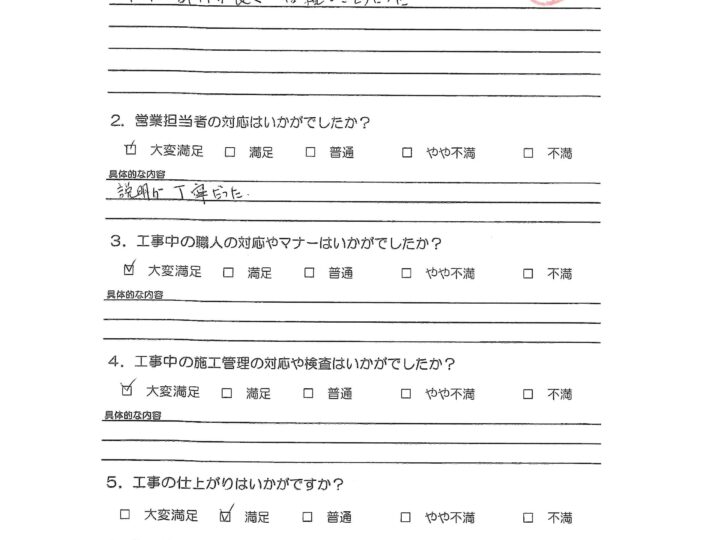 2. 営業担当者の対応はいかがでしたか?
☑ 大変満足 □ 満足 □ 普通 □ やや不満 □ 不満
具体的な内容
説明が丁寧だった.
3. 工事中の職人の対応やマナーはいかがでしたか?
☑ 大変満足 □ 満足 □ 普通 □ やや不満 □ 不満
具体的な内容
4. 工事中の施工管理の対応や検査はいかがでしたか?
☑ 大変満足 □ 満足 □ 普通 □ やや不満 □ 不満
具体的な内容
5. 工事の仕上がりはいかがですか?
□ 大変満足 ☑ 満足 □ 普通 □ やや不満 □ 不満